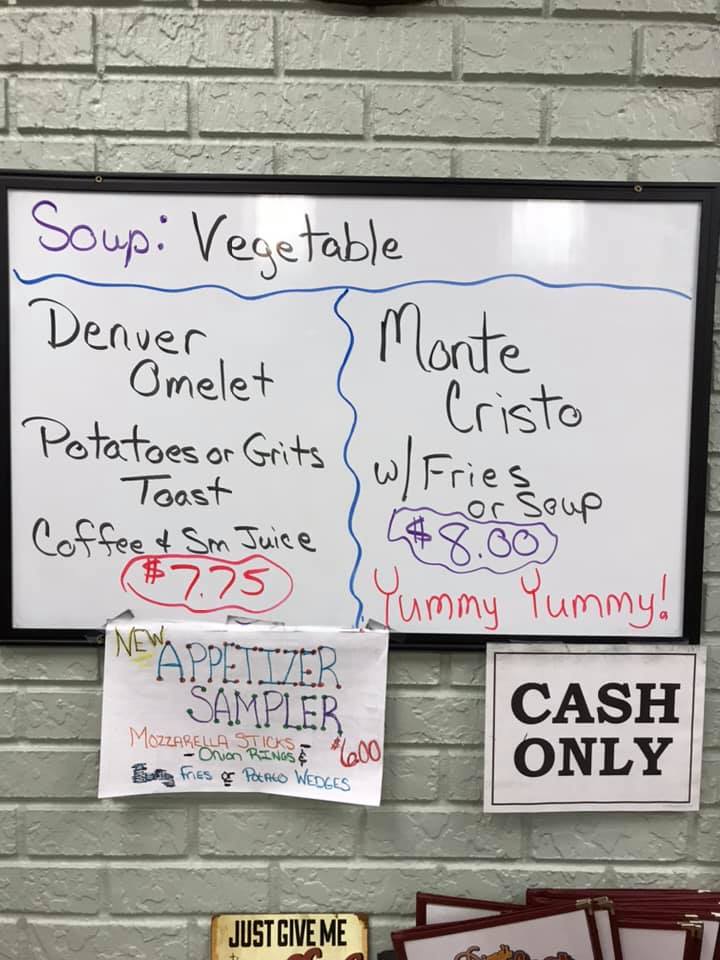 Soup: Vegetable
Denver
Omelet
Potatoes or Grits
Toast
Coffee & Sm Juice
$7.75
Monte
Cristo
w/ Fries
or Soup
$8.00
Yummy Yummy!
NEW
APPETIZER
SAMPLER
MOZZARELLA STICKS -
- ONION RINGS &
FRIES or POTATO WEDGES
$6.00
CASH
ONLY
JUST GIVE ME